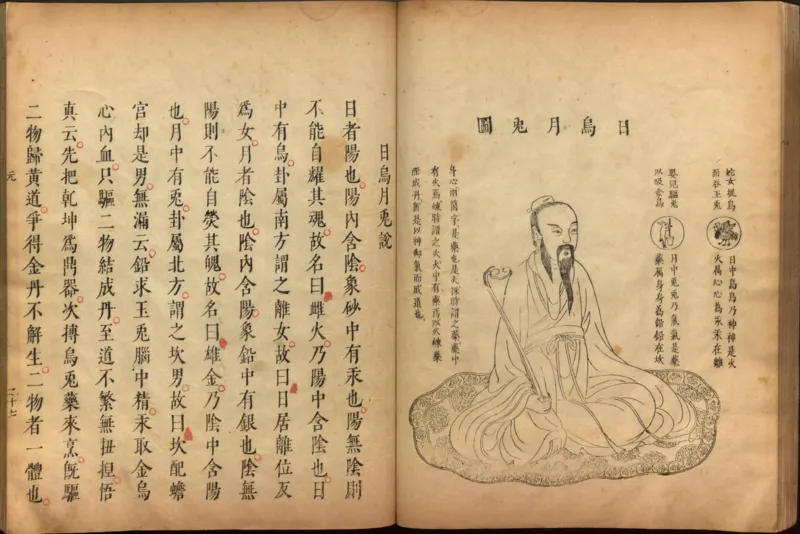 日烏月兎圖
日中烏烏乃神神是火
火屬心心為汞汞在離
嬰兒驅兎
以吸金烏
月中兎兎乃氣氣是藥
藥屬身身為鉛鉛在坎
身心兩箇字是藥也是火採時謂之藥藥中
有火焉煉時謂之火火中有藥焉以火煉藥
而成丹即是以神御氣而成道也
日烏月兎說
日者陽也陽內含陰象砂中有汞也陽無陰則
不能自耀其魂故名曰雌火乃陽中含陰也日
中有烏卦屬南方謂之離女故曰日居離位反
為女月者陰也陰內含陽象鉛中有銀也陰無
陽則不能自熒其魄故名曰雄金乃陰中含陽
也月中有兎卦屬北方謂之坎男故曰坎配蟾
宮却是男無漏云鉛求玉兎腦中精汞取金烏
心內血只驅二物結成丹至道不繁無扭揑悟
真云先把乾坤為鼎器次摶烏兎藥來烹旣驅
二物歸黃道爭得金丹不解生二物者一體也
元
二十七